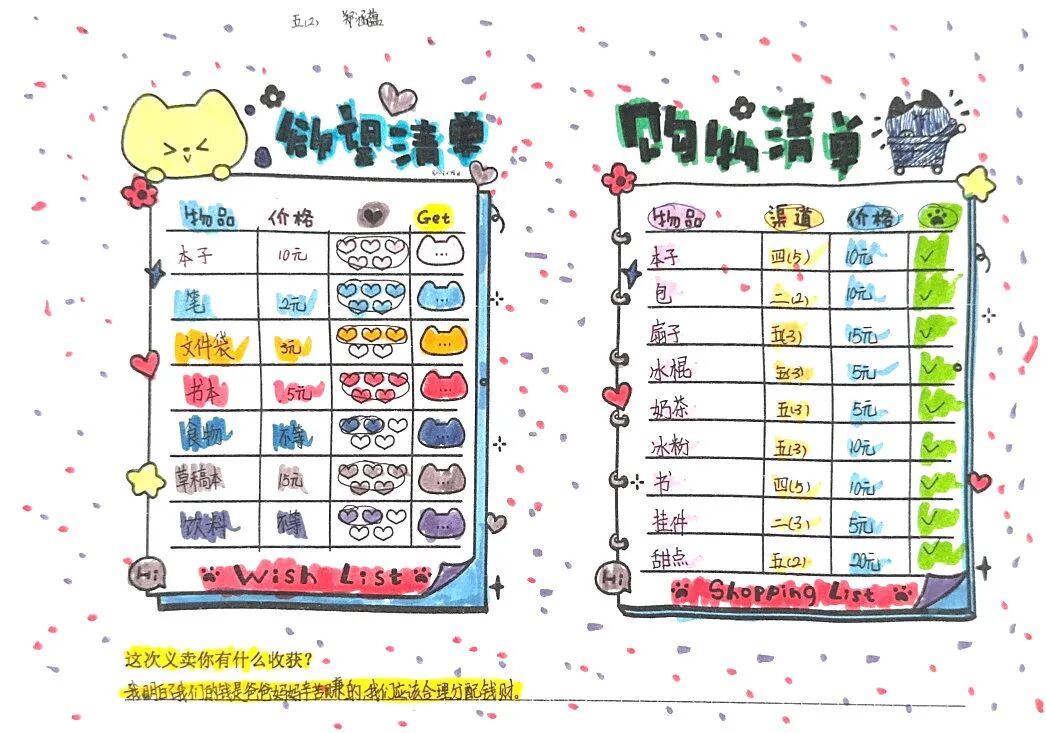 五(2) 郑涵蕴
欲望清单
物品 价格 Get
本子 10元
笔 2元
文件袋 3元
书本 5元
食物 不等
草稿本 15元
饮料 不等
Hi Wish List
购物清单
物品 渠道 价格
本子 四(5) 10元
包 二(2) 10元
扇子 五(3) 15元
冰棍 五(3) 5元
奶茶 五(3) 5元
冰粉 五(3) 10元
书 四(5) 10元
挂件 二(3) 5元
甜点 五(2) 20元
Hi Shopping List
这次义卖你有什么收获?
我明白了我们的钱是爸爸妈妈辛苦赚的,我们应该合理分配钱财。